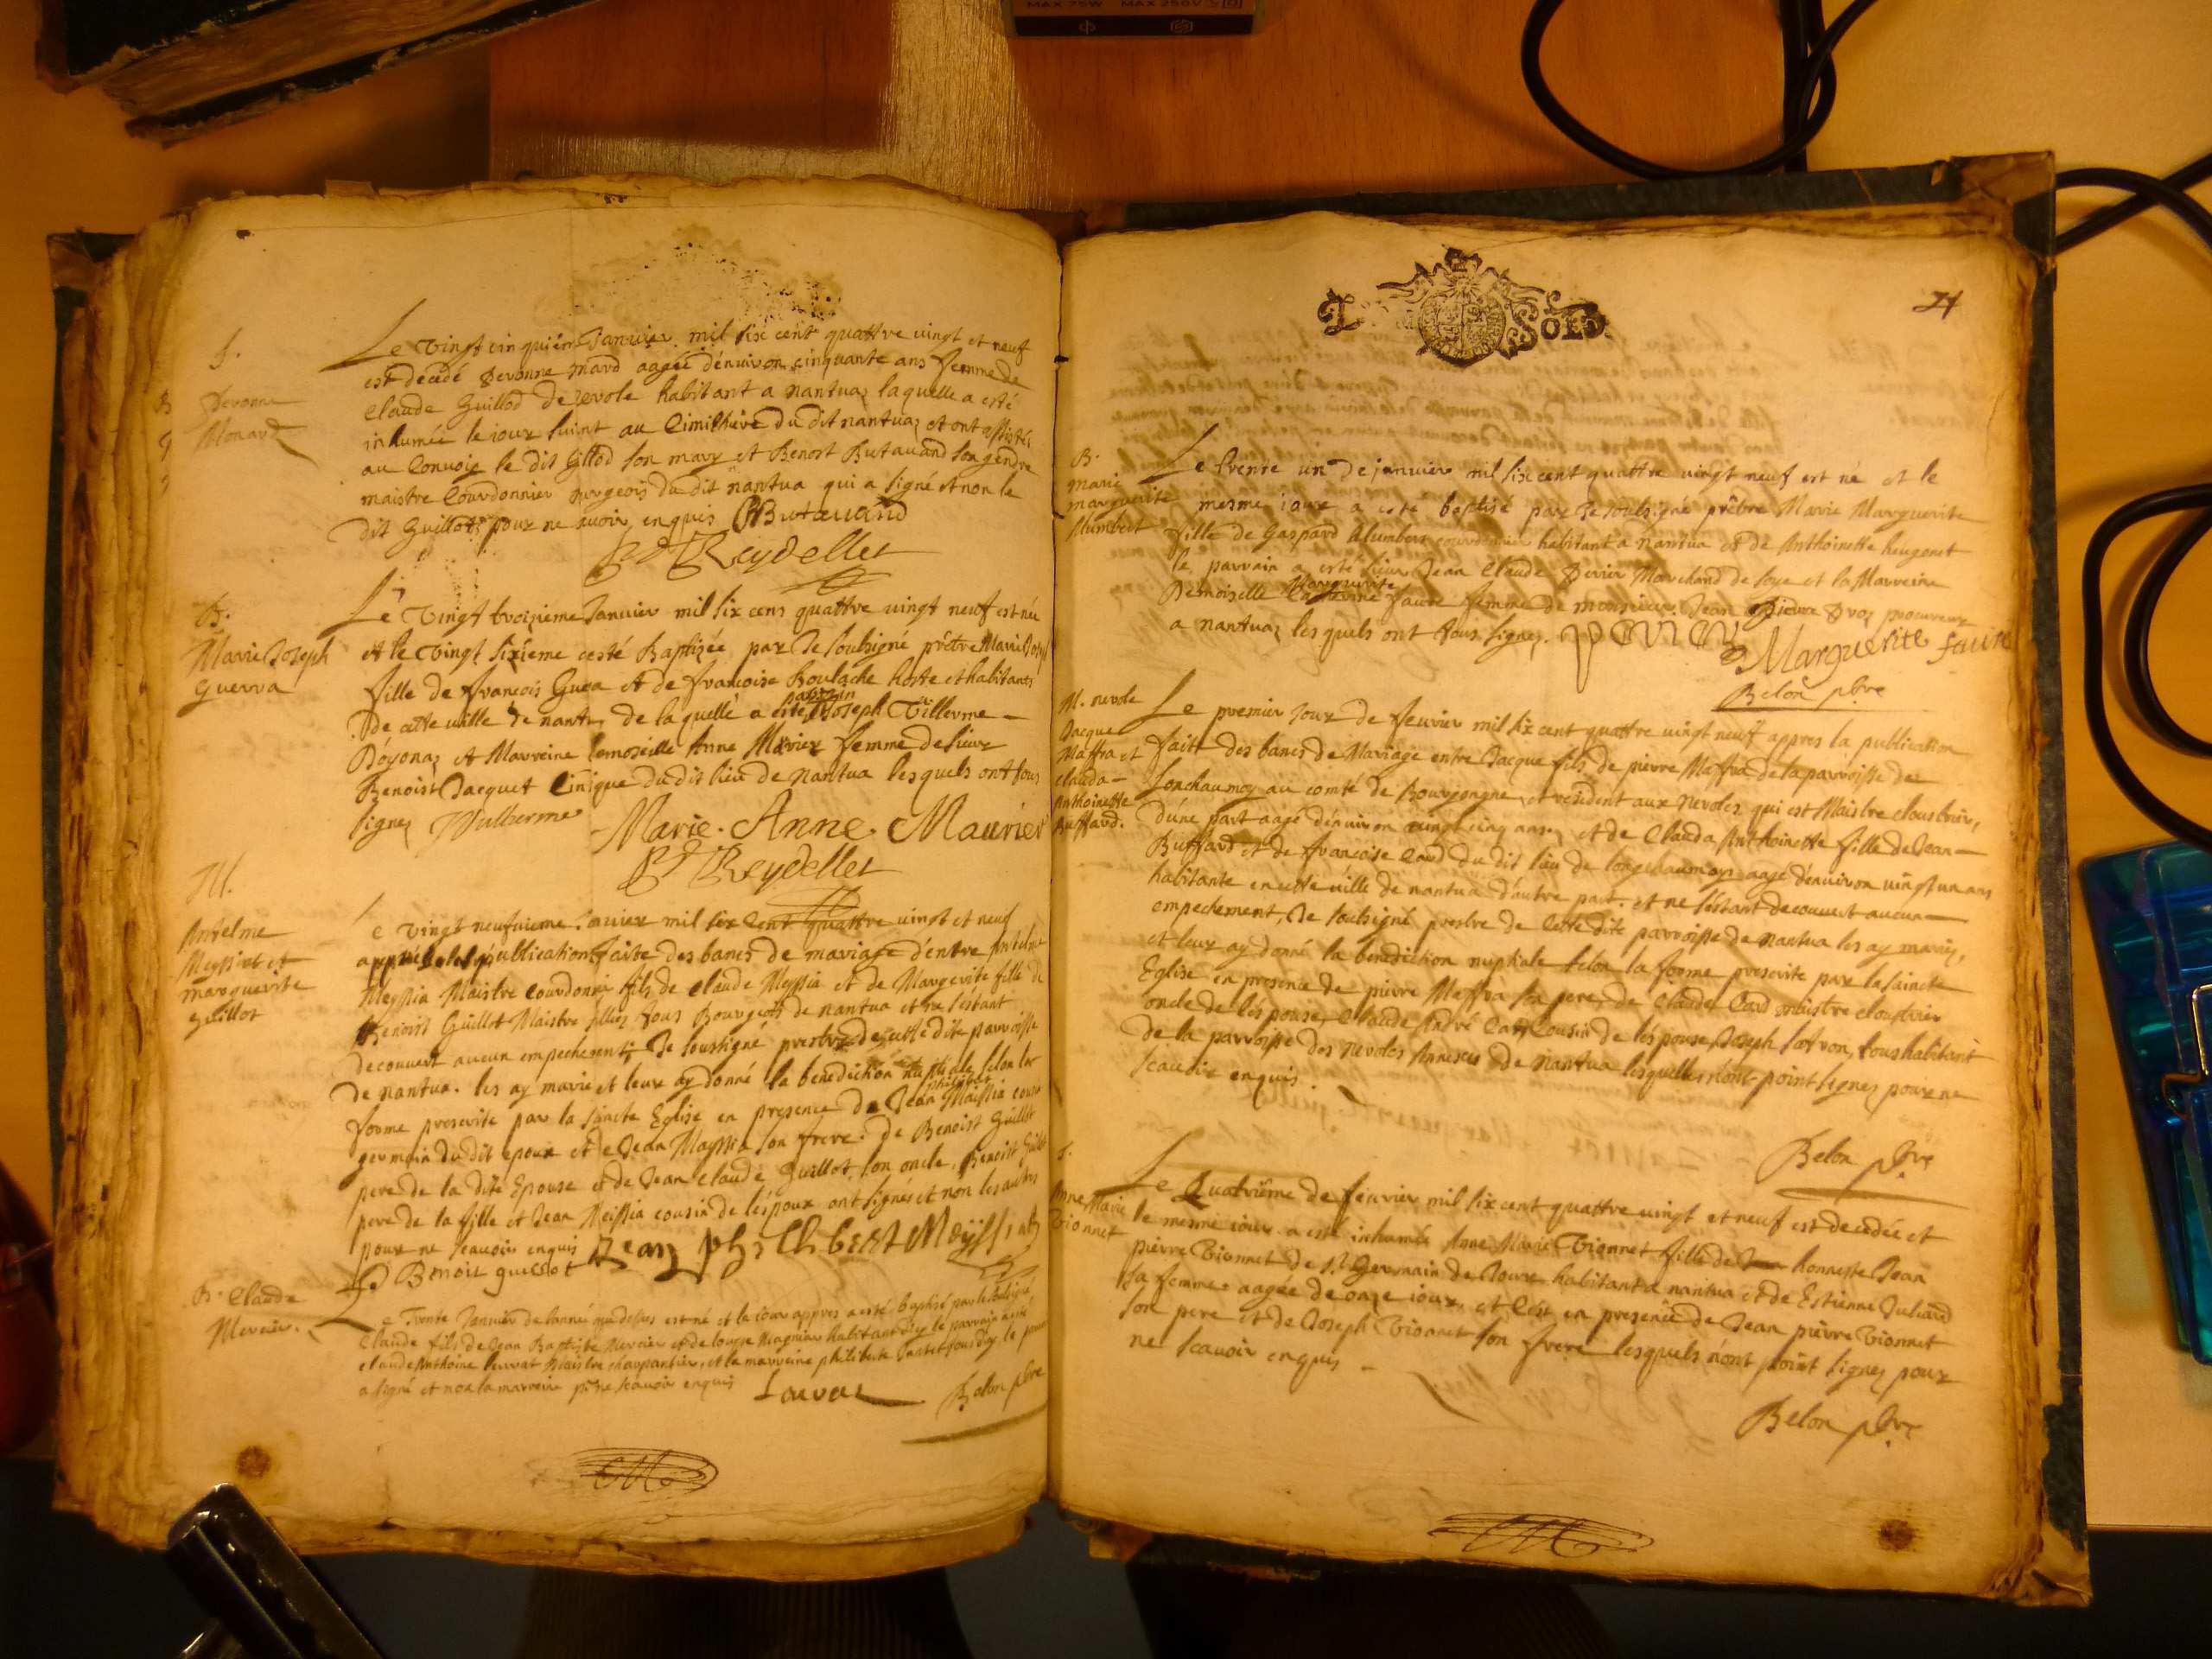 MAX 75W MAX 250V
S.
Pernonne
Monard
Le vingt cinquiem Janvier mil six cent quattre vingt et neuf
est decedé Pernonne Mard aagée dénuiron cinquante ans femme de
Claude Guillod de nevole habitant a nantuaz laquelle a esté
inhumée le iour suivnt au Cimithiere du dit nantuaz et ont assistés
au Convoig le dit Gillod son mary et Benoit Butavand son gendre
maistre Courdonnier Burgeois du dit nantua qui a signé et non le
dit Guillot pour ne scavoir enquis BButavand
Reydellet
B.
Marie Joseph
Guerra
Le vingt troisieme Janvier mil six cens quattre vingt neuf est née
et le vingt sixiéme a esté Baptizée par Je soubsigné prêtre Marie Joseph
fille de françois Guera et de françoise Boulache hoste et habitants
de cette ville de nantz de laquelle a esté parrain Joseph Villerme
Dóyonaz et Marreine demoiselle Anne Mavier femme de sieur
Benoist Jacquet dudit lieu de Nantua lesquels ont tous
signez JVullierme Marie. Anne. Maurier
Reydellet
M.
Anselme
Meyssiat et
marguerite
guillot
Le vingt neufuieme Janvier mil six Cent quattre vingt et neuf
appres la publication faite des bancs de mariage déntre Anthelme
Meyssia Maistre Courdonni fils de Claude Meyssia et de Margerite fille de
Benoist Guillot Maistre tous Bourgeois de nantua et ne sestant
decouvert aucun empechement Je soussigné prestre de cette dite parroisse
de nantua. les ay marié et leur ay donné la benediction nuptiale selon la
forme prescrite par la saincte Eglise en presence de Jean philibert Maissia cousin
germain du dit epoux et de Jean Mayssia son frere. de Benoist Guillot
pere de la dite Epouse et de Jean Claude Guillot son oncle. Benoist Guillot
pere de la fille et Jean Meissia cousin de lépoux ont signés et non les autres
pour ne scavoir enquis Jean philibert Meyssiat
Benoit guillot
B. Claude
Mercier.
Le Trente Janvier de lanné que dessus est né et le iour appres a esté baptisé par le soubsigné
Claude fils de Jean Baptiste Mercier et de Louyse Magnin habitant le parrain a esté
claude Anthoine Maistre charpantier, et la marreine philiberte le parrain
a signé et non la marreine pour ne scavoir enquis Belon pbre
24
Sols
B.
marie
marguerite
Humbert
Le trente un de janvier mil six cent quattre vingt neuf est né et le
mesme iour a esté baptisé par Je soubsigné prêtre Marie Marguerite
fille de Gaspard Humbert courdonnier habitant a nantua et de Anthoinette heugonet
le parrain a esté sieur Jean Claude Perier Marchand de soye et la Marreine
Demoiselle Marguerite faure femme de monsieur Jean Pierre procureur
a nantuaz les quels ont tous signez. Perier Marguerite faure
Belon pbre
M. nevole
Jacque
Maffra et
clauda
Anthoinette
Buffard.
Le premier Jour de fevrier mil six cent quattre vingt neuf appres la publication
faitt des bancs de Mariage entre Jacque fils de pierre Maffra de la parroisse de
Lonchaumoy au comté de Bourgongne et resident aux nevoles qui est Maistre cloustrier,
d'une part aagé dénuiron vingt cinq ans, et de Clauda Anthoinette fille de Jean
Buffard et de françoise Card du dit lieu de longchaumoy aagé dénuiron vingt un ans
habitante en cette ville de nantua d'autre part. et ne sestant decouvert aucun
empechement, Je soubsigné prestre de Cette dite parroisse de nantua les ay mariez,
et leur ay donné la benediction nuptiale selon la forme prescrite par la saincte
Eglise en presence de pierre Maffra son pere, de Claude Card maistre cloustrier
oncle de lépouse, Claude André Card Cousin de lépouse, Joseph tous habitant
de la parroisse des nevoles Annexes de nantua lesquelles nónt point signez pour ne
scavoir enquis.
Belon pbre
S.
Anne Marie
Vionnet
Le Quatriême de fevrier mil six cent quattre vingt et neuf est decedée et
le mesme iour a esté inhumée Anne Marie Vionnet fille de honneste Jean
pierre Vionnet de St Germain de Joux habitant a nantua et de Estienne Juliard
sa femme. aagée de onze iour, et cést en presence de Jean pierre Vionnet
son pere et de Joseph Vionnet son frere lesquels nont point signez pour
ne scavoir enquis
Belon pbre